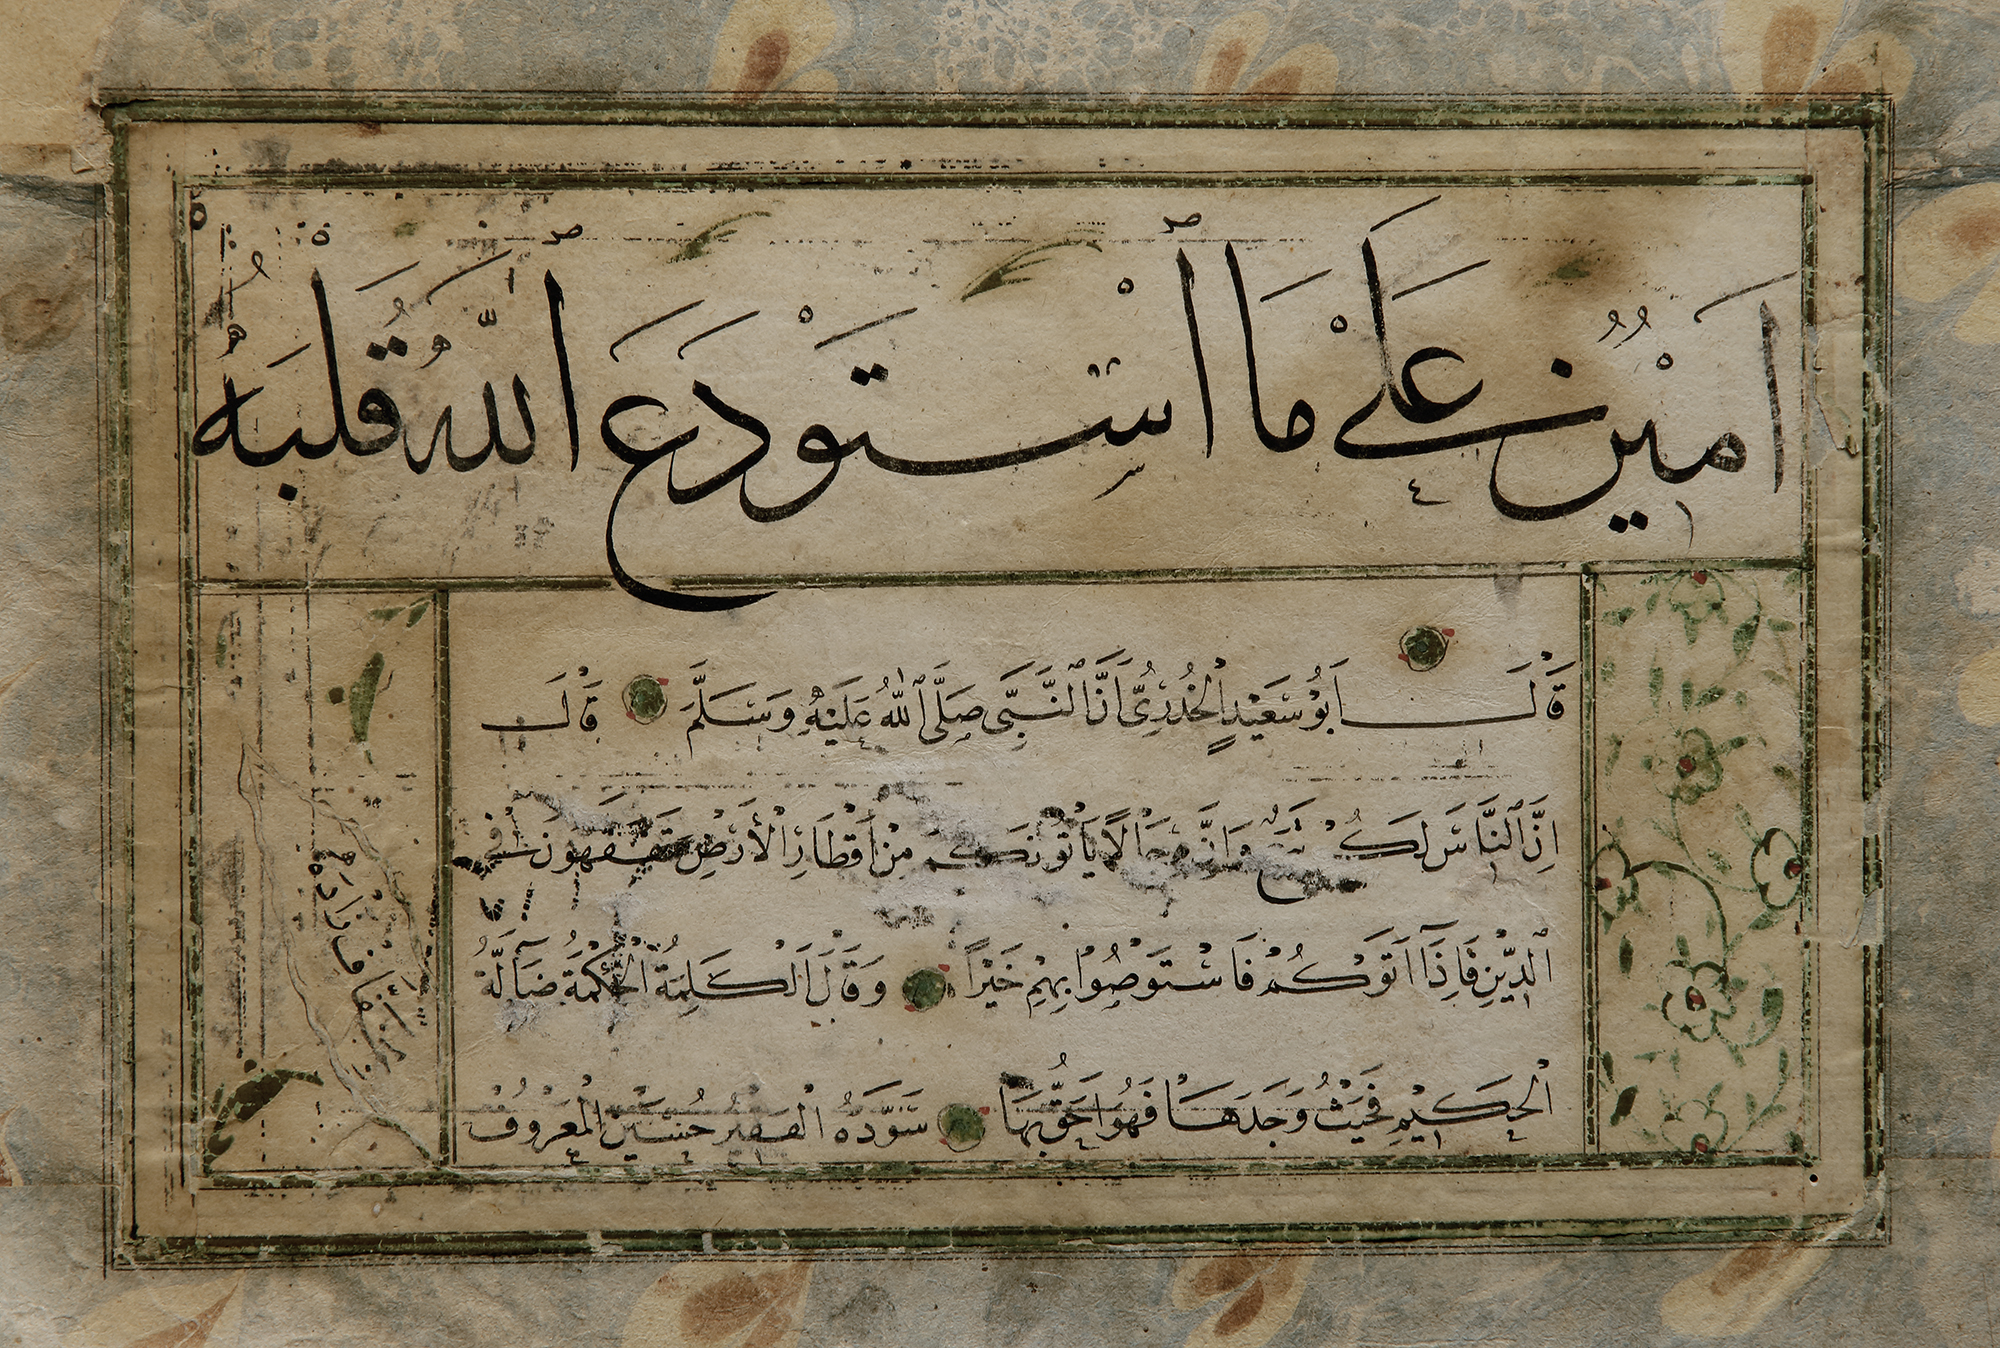 اَمِيْنٌ عَلَىْ مَا اسْتَوْدَعَ اللّٰهُ قَلْبَهُ
قَالَ اَبُوْ سَعِيْدٍ الْخُدْرِىُّ اَنَّ النَّبِىَّ صَلَّى اللّٰهُ عَلَيْهِ وَسَلَّمَ قَالَ
اِنَّ النَّاسَ لَكُمْ تَبَعٌ وَاِنَّ رِجَالًا يَأْتُوْنَكُمْ مِنْ اَقْطَارِ الْأَرْضِ يَتَفَقَّهُوْنَ فِى
الدِّيْنِ فَاِذَا اَتَوْكُمْ فَاسْتَوْصُوْا بِهِمْ خَيْرًا وَقَالَ الْكَلِمَةُ الْحِكْمَةُ ضَالَّةُ
الْحَكِيْمِ فَحَيْثُ وَجَدَهَا فَهُوَ اَحَقُّ بِهَا سَوَّدَهُ الْفَقِيْرُ حُسَيْنُ الْمَعْرُوْفُ